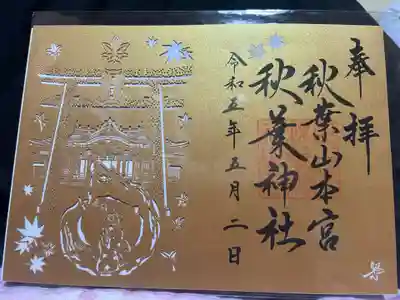 奉拝
秋葉山本宮
秋葉神社
令和五年五月二日